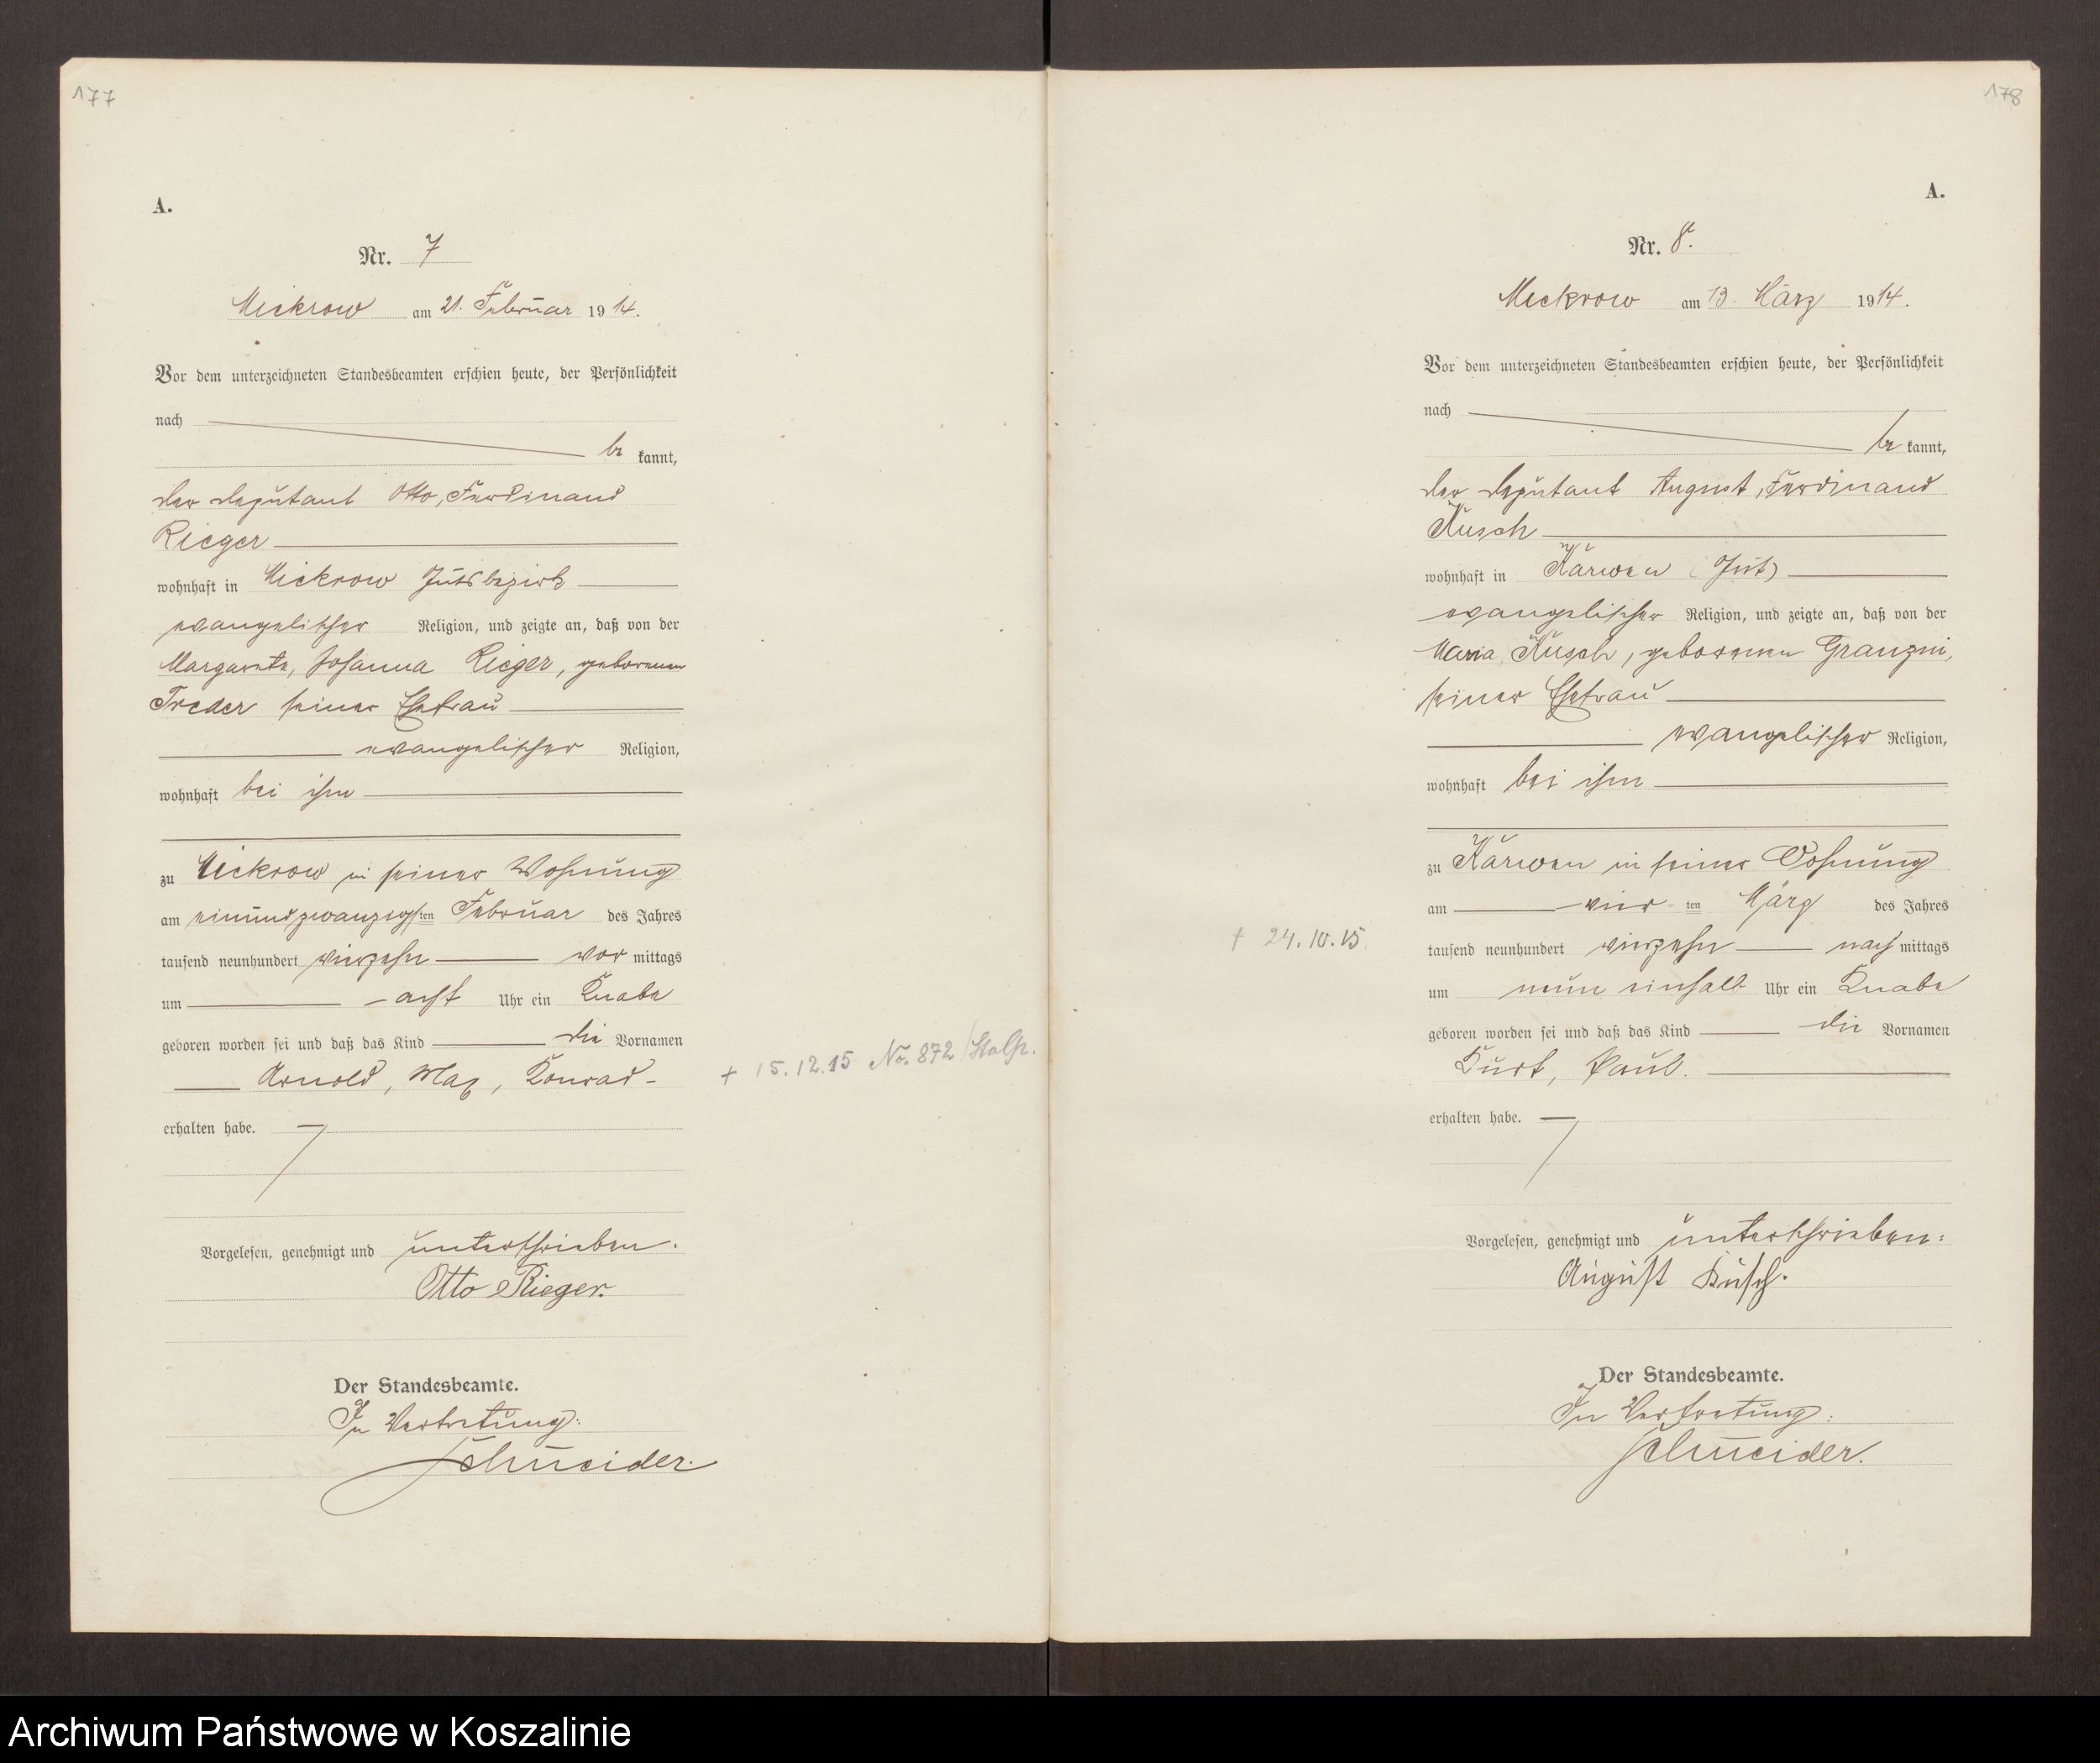 177
A.
Nr. 7
Mickrow am 21. Februar 1914.
Vor dem unterzeichneten Standesbeamten erschien heute, der Persönlichkeit
nach
be kannt,
der Deputant Otto, Ferdinand
Rieger
wohnhaft in Mickrow Gutsbezirk
evangelischer Religion, und zeigte an, daß von der
Margarete, Johanna Rieger, geborenen
Treder seiner Ehefrau
evangelischer Religion,
wohnhaft bei ihm
zu Mickrow in seiner Wohnung
am einundzwanzigsten Februar des Jahres
tausend neunhundert vierzehn vor mittags
um acht Uhr ein Knabe
geboren worden sei und daß das Kind die Vornamen
Arnold, Max, Konrad
erhalten habe.
+ 15.12.15 No. 872/Stolp.
Vorgelesen, genehmigt und unterschrieben.
Otto Rieger.
Der Standesbeamte.
In Vertretung:
Schneider.
178
A.
Nr. 8.
Mickrow am 13. März 1914.
Vor dem unterzeichneten Standesbeamten erschien heute, der Persönlichkeit
nach
be kannt,
der Deputant August, Ferdinand
Kusch
wohnhaft in Karwen (Gut)
evangelischer Religion, und zeigte an, daß von der
Maria Kusch, geborenen Granzni,
seiner Ehefrau
evangelischer Religion,
wohnhaft bei ihm
zu Karwen in seiner Wohnung
am vier ten März des Jahres
tausend neunhundert vierzehn nach mittags
um neun einhalb Uhr ein Knabe
geboren worden sei und daß das Kind die Vornamen
Kurt, Paul.
erhalten habe.
† 24.10.15.
Vorgelesen, genehmigt und unterschrieben:
August Kusch.
Der Standesbeamte.
In Vertretung:
Schneider.
Archiwum Państwowe w Koszalinie